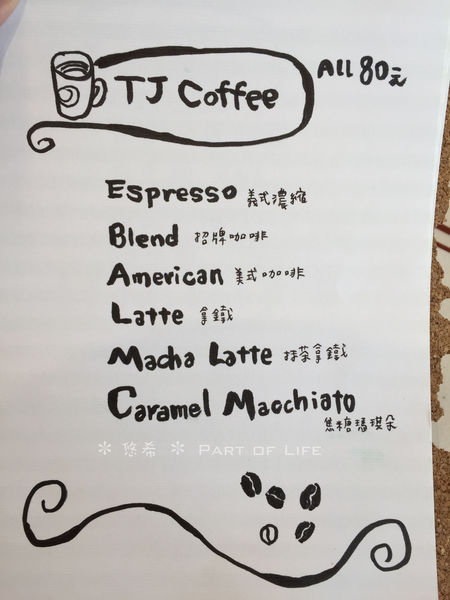 TJ Coffee
All 80元
Espresso 義式濃縮
Blend 招牌咖啡
American 美式咖啡
Latte 拿鐵
Macha Latte 抹茶拿鐵
Caramel Macchiato
焦糖瑪琪朵
＊ 悠希 ＊ PART OF LIFE